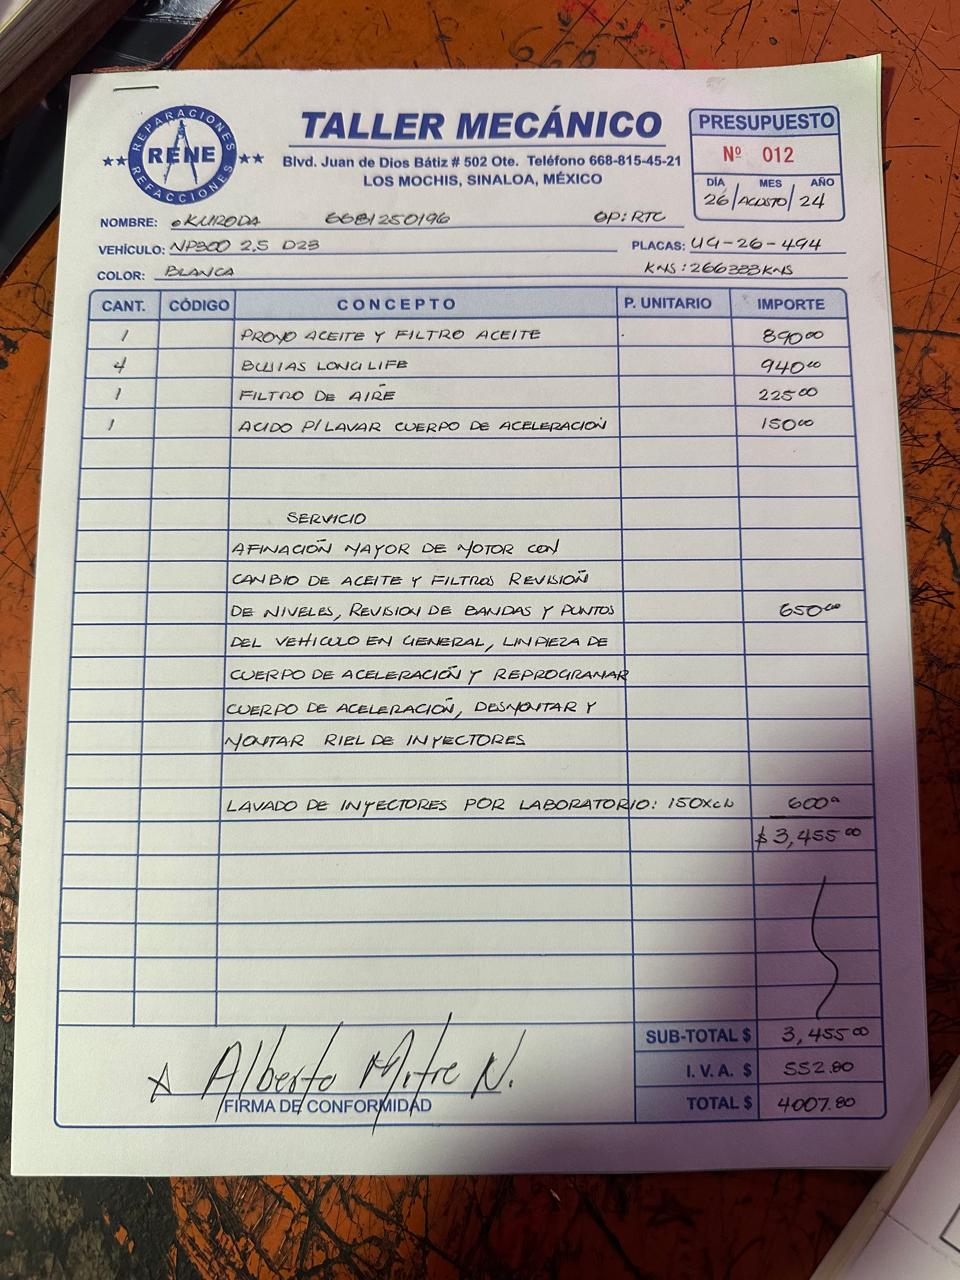 REPARACIONES
RENE
REFACCIONES
TALLER MECÁNICO
Blvd. Juan de Dios Bátiz # 502 Ote. Teléfono 668-815-45-21
LOS MOCHIS, SINALOA, MÉXICO
PRESUPUESTO
Nº 012
DÍA MES AÑO
26/AGOSTO/24
NOMBRE: OKURODA 6681250196 OP: RTC
VEHÍCULO: NP300 2.5 D23 PLACAS: UG-26-494
COLOR: BLANCA KMS: 266383KMS
CANT. CÓDIGO CONCEPTO P. UNITARIO IMPORTE
1 PROMO ACEITE Y FILTRO ACEITE 890.00
4 BUJIAS LONG LIFE 940.00
1 FILTRO DE AIRE 225.00
1 ACIDO P/LAVAR CUERPO DE ACELERACION 150.00
SERVICIO
AFINACIÓN MAYOR DE MOTOR CON
CAMBIO DE ACEITE Y FILTROS REVISIÓN
DE NIVELES, REVISION DE BANDAS Y PUNTOS 650.00
DEL VEHICULO EN GENERAL, LIMPIEZA DE
CUERPO DE ACELERACIÓN Y REPROGRAMAR
CUERPO DE ACELERACIÓN, DESMONTAR Y
MONTAR RIEL DE INYECTORES
LAVADO DE INYECTORES POR LABORATORIO: 150xc/u 600.00
$3,455.00
SUB-TOTAL $ 3,455.00
I.V.A. $ 552.80
TOTAL $ 4007.80
Alberto Mitre N.
FIRMA DE CONFORMIDAD